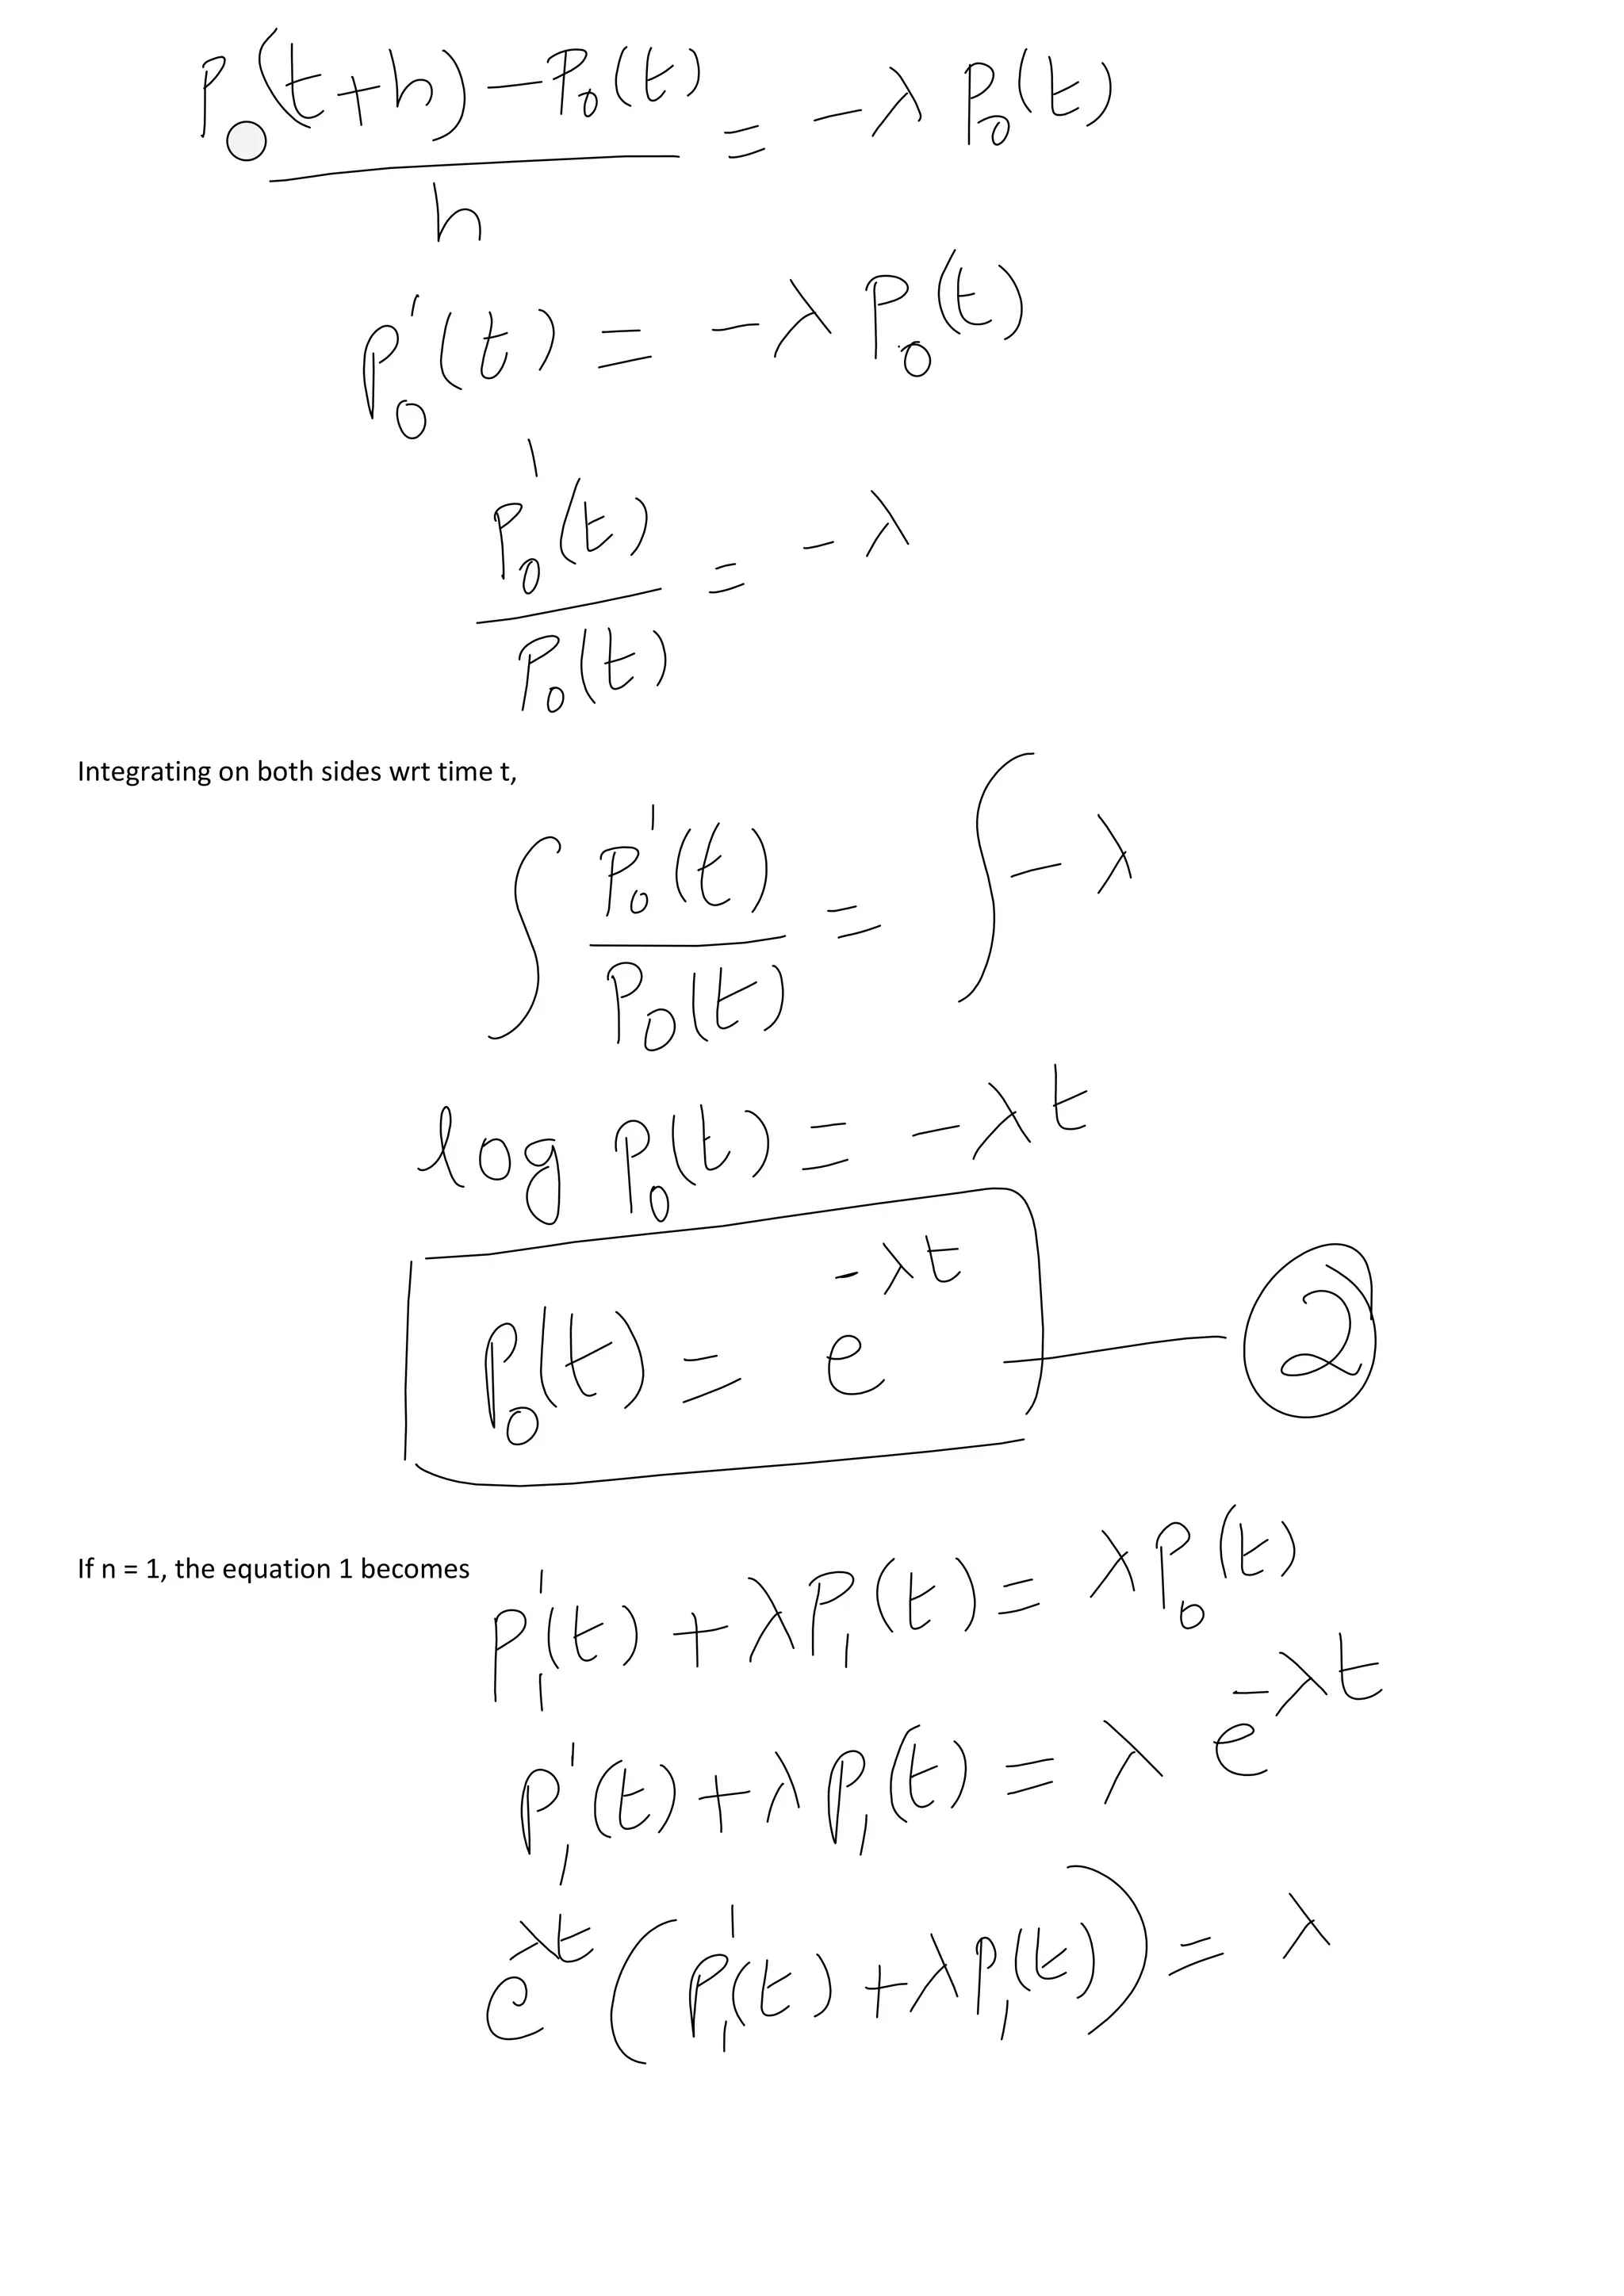 P₀(t+h) − P₀(t) / h = −λ P₀(t)
P₀'(t) = −λ P₀(t)
P₀'(t) / P₀(t) = −λ
Integrating on both sides wrt time t,
∫ P₀'(t) / P₀(t) = ∫ −λ
log P₀(t) = −λt
P₀(t) = e^(−λt) — ②
If n = 1, the equation 1 becomes P₁'(t) + λP₁(t) = λP₀(t)
P₁'(t) + λP₁(t) = λ e^(−λt)
e^(λt) (P₁'(t) + λP₁(t)) = λ